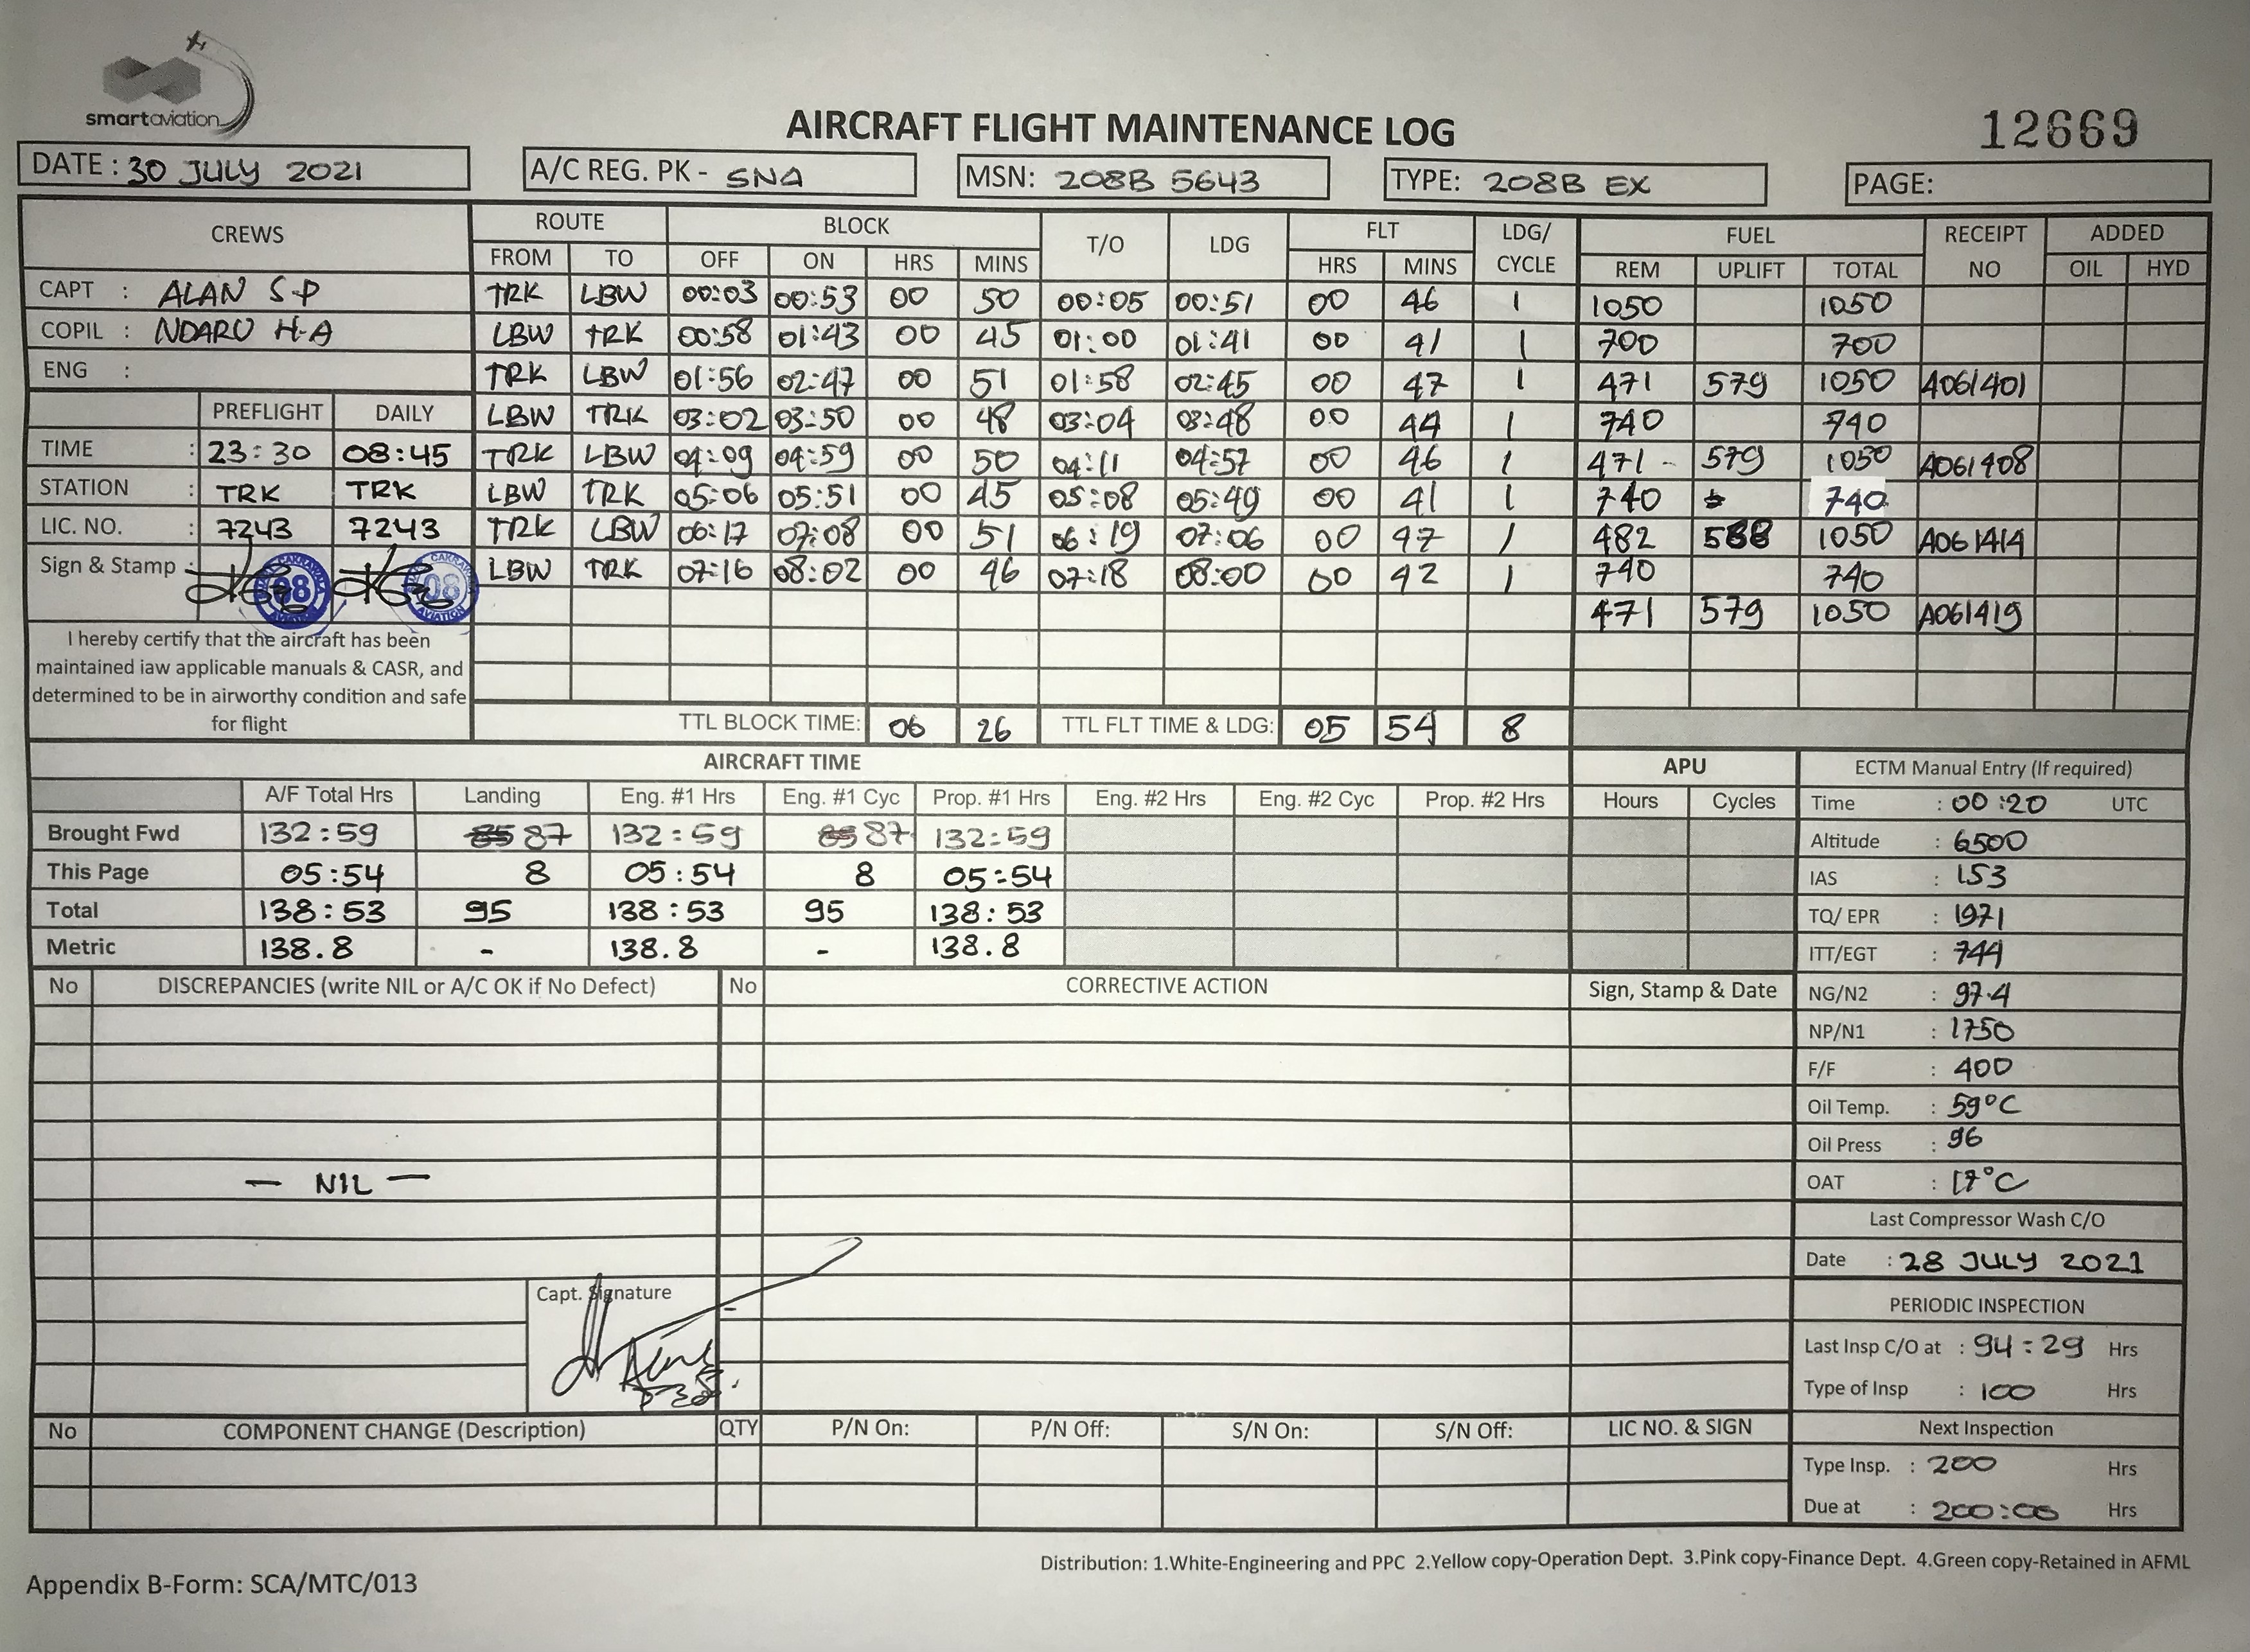 smartaviation
AIRCRAFT FLIGHT MAINTENANCE LOG
12669
DATE : 30 JULY 2021 A/C REG. PK - SNA MSN: 208B 5643 TYPE: 208B EX PAGE:
CREWS ROUTE BLOCK T/O LDG FLT LDG/ CYCLE FUEL RECEIPT NO ADDED
FROM TO OFF ON HRS MINS HRS MINS REM UPLIFT TOTAL OIL HYD
CAPT : ALAN S-P TRK LBW 00:03 00:53 00 50 00:05 00:51 00 46 1 1050 1050
COPIL : NDARU H-A LBW TRK 00:58 01:43 00 45 01:00 01:41 00 41 1 700 700
ENG : TRK LBW 01:56 02:47 00 51 01:58 02:45 00 47 1 471 579 1050 A061401
PREFLIGHT DAILY LBW TRK 03:02 03:50 00 48 03:04 03:48 00 44 1 740 740
TIME : 23:30 08:45 TRK LBW 04:09 04:59 00 50 04:11 04:57 00 46 1 471 - 579 1050 A061408
STATION : TRK TRK LBW TRK 05:06 05:51 00 45 05:08 05:49 00 41 1 740 740
LIC. NO. : 7243 7243 TRK LBW 06:17 07:08 00 51 06:19 07:06 00 47 1 482 1050 A061414
Sign & Stamp : 08 08 LBW TRK 07:16 08:02 00 46 07:18 08:00 00 42 1 740 740
471 579 1050 A061419
I hereby certify that the aircraft has been
maintained iaw applicable manuals & CASR, and
determined to be in airworthy condition and safe
for flight
TTL BLOCK TIME: 06 26 TTL FLT TIME & LDG: 05 54 8
AIRCRAFT TIME APU ECTM Manual Entry (If required)
A/F Total Hrs Landing Eng. #1 Hrs Eng. #1 Cyc Prop. #1 Hrs Eng. #2 Hrs Eng. #2 Cyc Prop. #2 Hrs Hours Cycles Time : 00:20 UTC
Brought Fwd 132:59 87 132:59 87 132:59 Altitude : 6500
This Page 05:54 8 05:54 8 05:54 IAS : 153
Total 138:53 95 138:53 95 138:53 TQ/ EPR : 1971
Metric 138.8 - 138.8 - 138.8 ITT/EGT : 744
No DISCREPANCIES (write NIL or A/C OK if No Defect) No CORRECTIVE ACTION Sign, Stamp & Date NG/N2 : 97.4
NP/N1 : 1750
F/F : 400
Oil Temp. : 59°C
Oil Press : 96
— NIL — OAT : 17°C
Last Compressor Wash C/O
Date : 28 JULY 2021
Capt. Signature
PERIODIC INSPECTION
Last Insp C/O at : 94:29 Hrs
Type of Insp : 100 Hrs
No COMPONENT CHANGE (Description) QTY P/N On: P/N Off: S/N On: S/N Off: LIC NO. & SIGN Next Inspection
Type Insp. : 200 Hrs
Due at : 200:00 Hrs
Distribution: 1.White-Engineering and PPC 2.Yellow copy-Operation Dept. 3.Pink copy-Finance Dept. 4.Green copy-Retained in AFML
Appendix B-Form: SCA/MTC/013